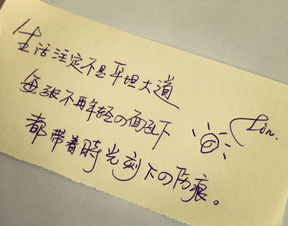 生活注定不是平坦大道
每张不再年轻的面孔下
都带着時光刻下的伤痕。